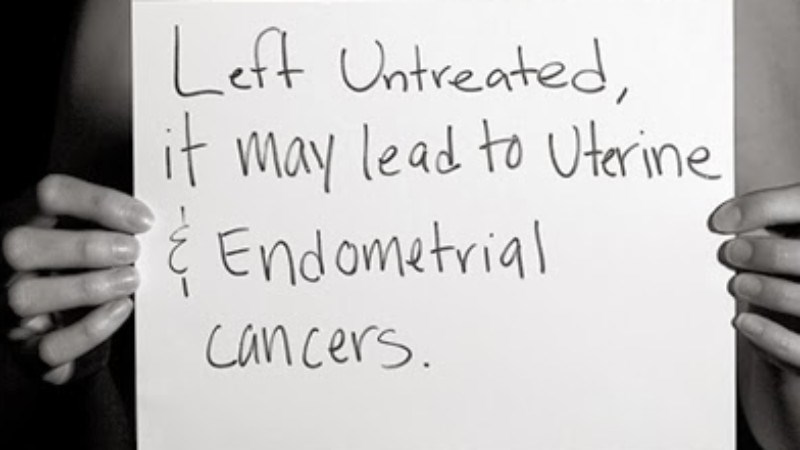 Left Untreated,
it may lead to Uterine
& Endometrial
cancers.